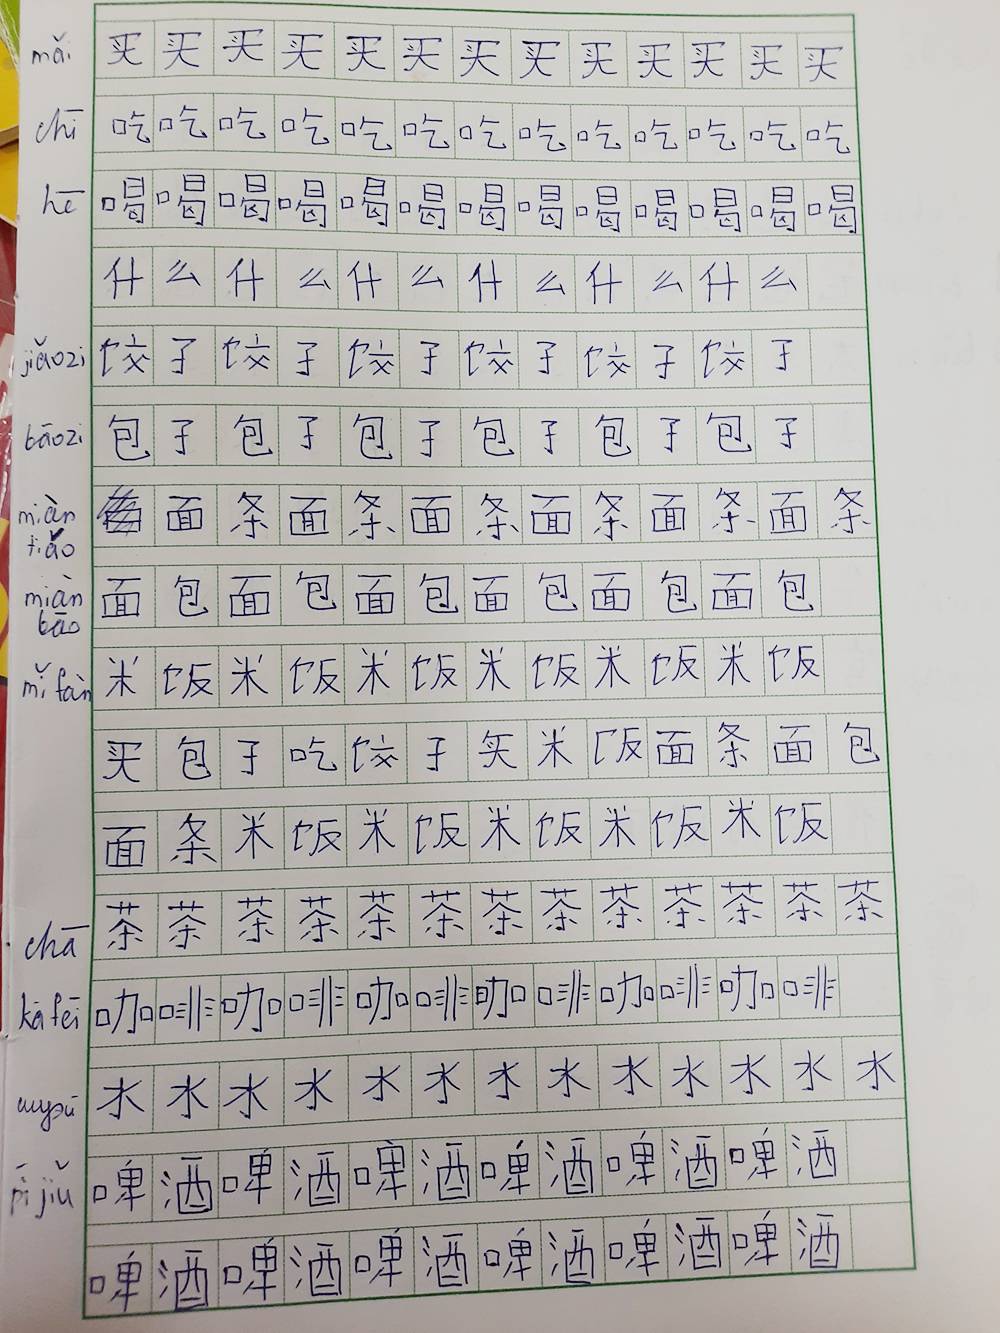 mǎi 买买买买买买买买买买买买买
chī 吃吃吃吃吃吃吃吃吃吃吃吃吃
hē 喝喝喝喝喝喝喝喝喝喝喝喝喝
什么什么什么什么什么什么
jiǎozi 饺子饺子饺子饺子饺子饺子
bāozi 包子包子包子包子包子包子
miàn tiǎo 面条面条面条面条面条面条
miàn bāo 面包面包面包面包面包面包
mǐ fàn 米饭米饭米饭米饭米饭米饭
买包子吃饺子买米饭面条面包
面条米饭米饭米饭米饭米饭
chā 茶茶茶茶茶茶茶茶茶茶茶茶茶
kā fēi 咖啡咖啡咖啡咖啡咖啡咖啡
水水水水水水水水水水水水水
pí jiǔ 啤酒啤酒啤酒啤酒啤酒啤酒
啤酒啤酒啤酒啤酒啤酒啤酒